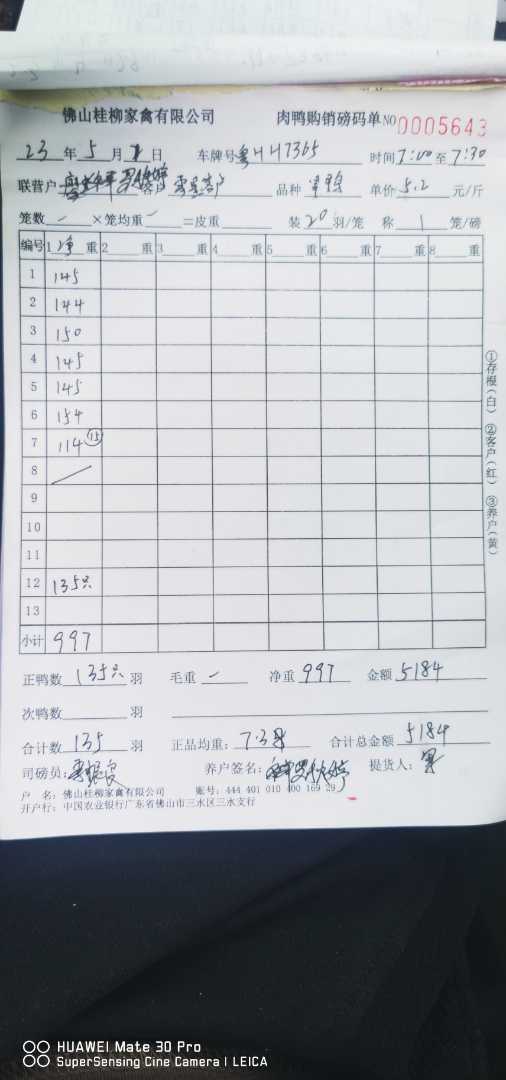 佛山桂柳家禽有限公司 肉鸭购销磅码单 NO 0005643
23 年 5 月 日 车牌号 粤HH7365 时间 7:00 至 7:30
联营户 客户 品种 单价 5.2 元/斤
笼数 一 ×笼均重 一 =皮重 装 20 羽/笼 称 1 笼/磅
编号 1 净 重 2 重 3 重 4 重 5 重 6 重 7 重 8 重
1 145
2 144
3 150
4 145
5 145
6 154
7 114 ⑮
8
9
10
11
12 135只
13
小计 997
①存根(白) ②客户(红) ③养户(黄)
正鸭数 135只 羽 毛重 一 净重 997 金额 5184
次鸭数 羽
合计数 135 羽 正品均重: 7.38 合计总金额 5184
司磅员: 养户签名: 提货人:
户 名: 佛山桂柳家禽有限公司 账号: 444 401 010 400 169 29
开户行: 中国农业银行广东省佛山市三水区三水支行
HUAWEI Mate 30 Pro
SuperSensing Cine Camera | LEICA